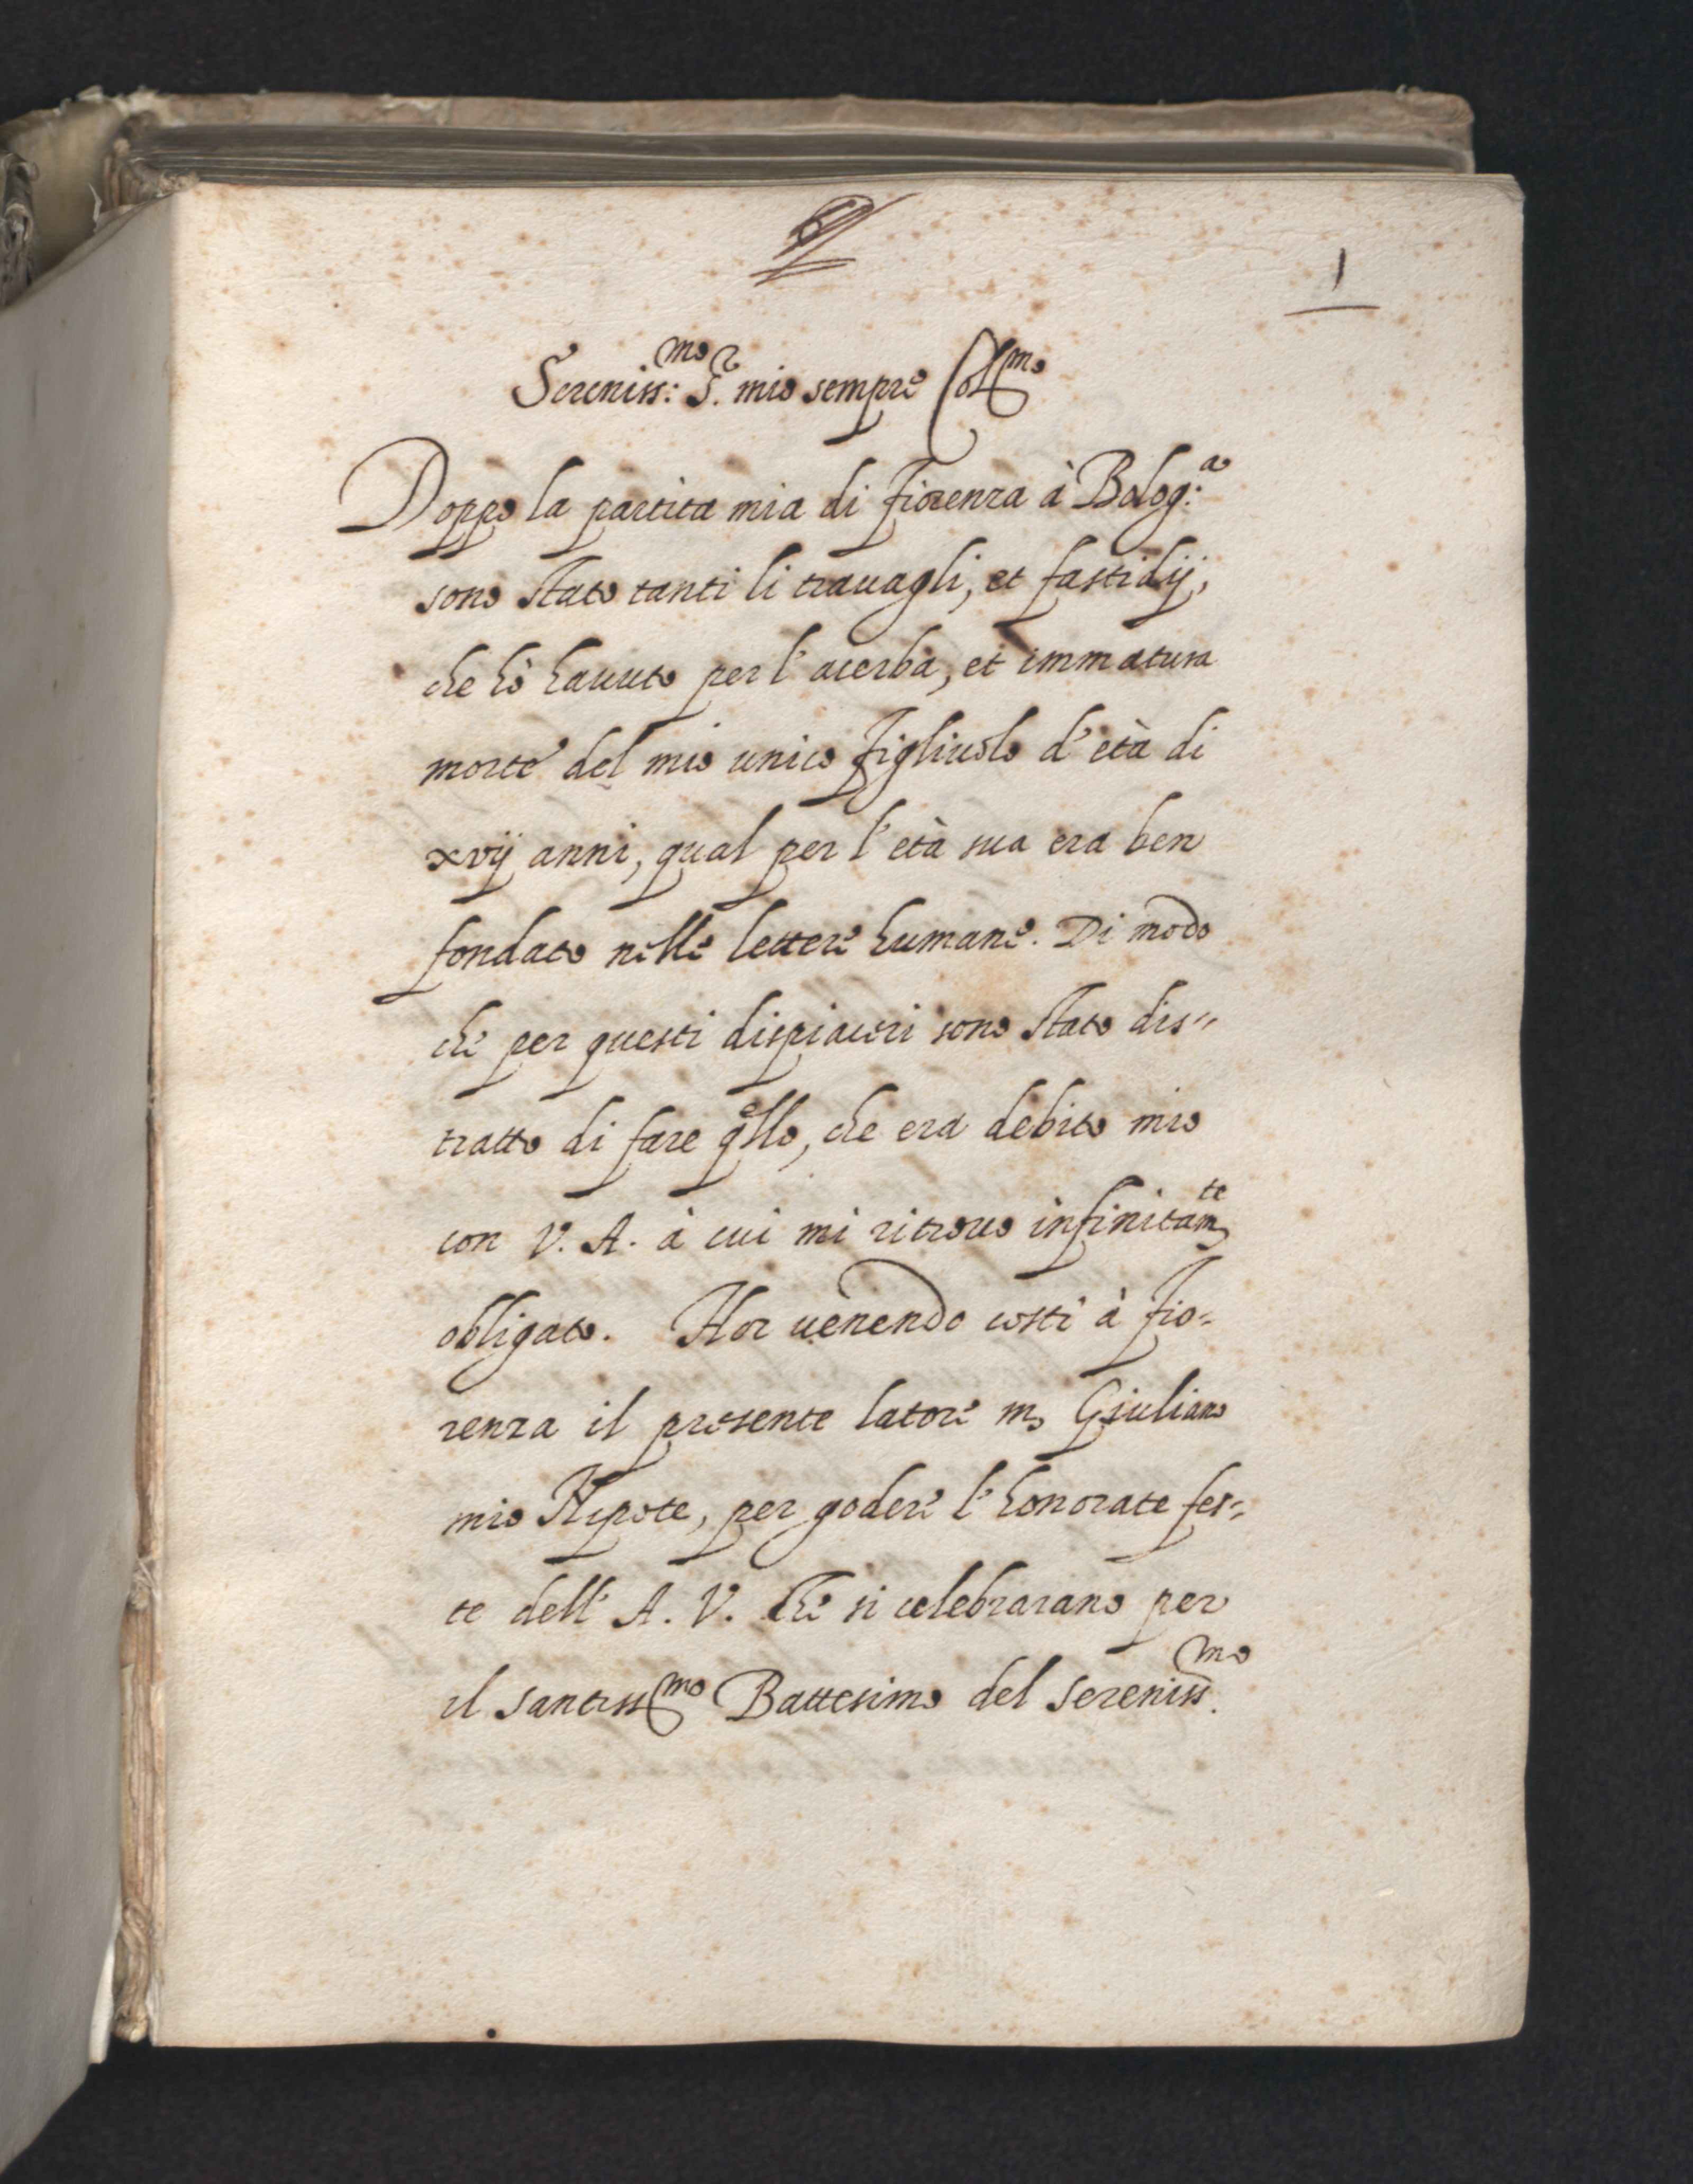 1
Sereniss:mo Sr. mio sempre Collmo
Doppo la partita mia di Fiorenza à Bolog:a
sono stato tanti li trauagli, et fastidij,
che hò hauuto per l'acerba, et immatura
morte del mio unico figliuolo d'età di
xvij anni, qual per l'età sua era ben
fondato nelle lettere humane. Di modo
che per questi dispiaceri sono stato dis=
tratto di fare qello, che era debito mio
con V. A. à cui mi ritrouo infinitamte
obligato. Hor uenendo costi à Fio=
renza il presente latore m. Giuliano
mio Nipote, per godere l'honorate fes=
te dell' A. V. che si celebrarano per
il santissmo Battesimo del Sereniss.mo